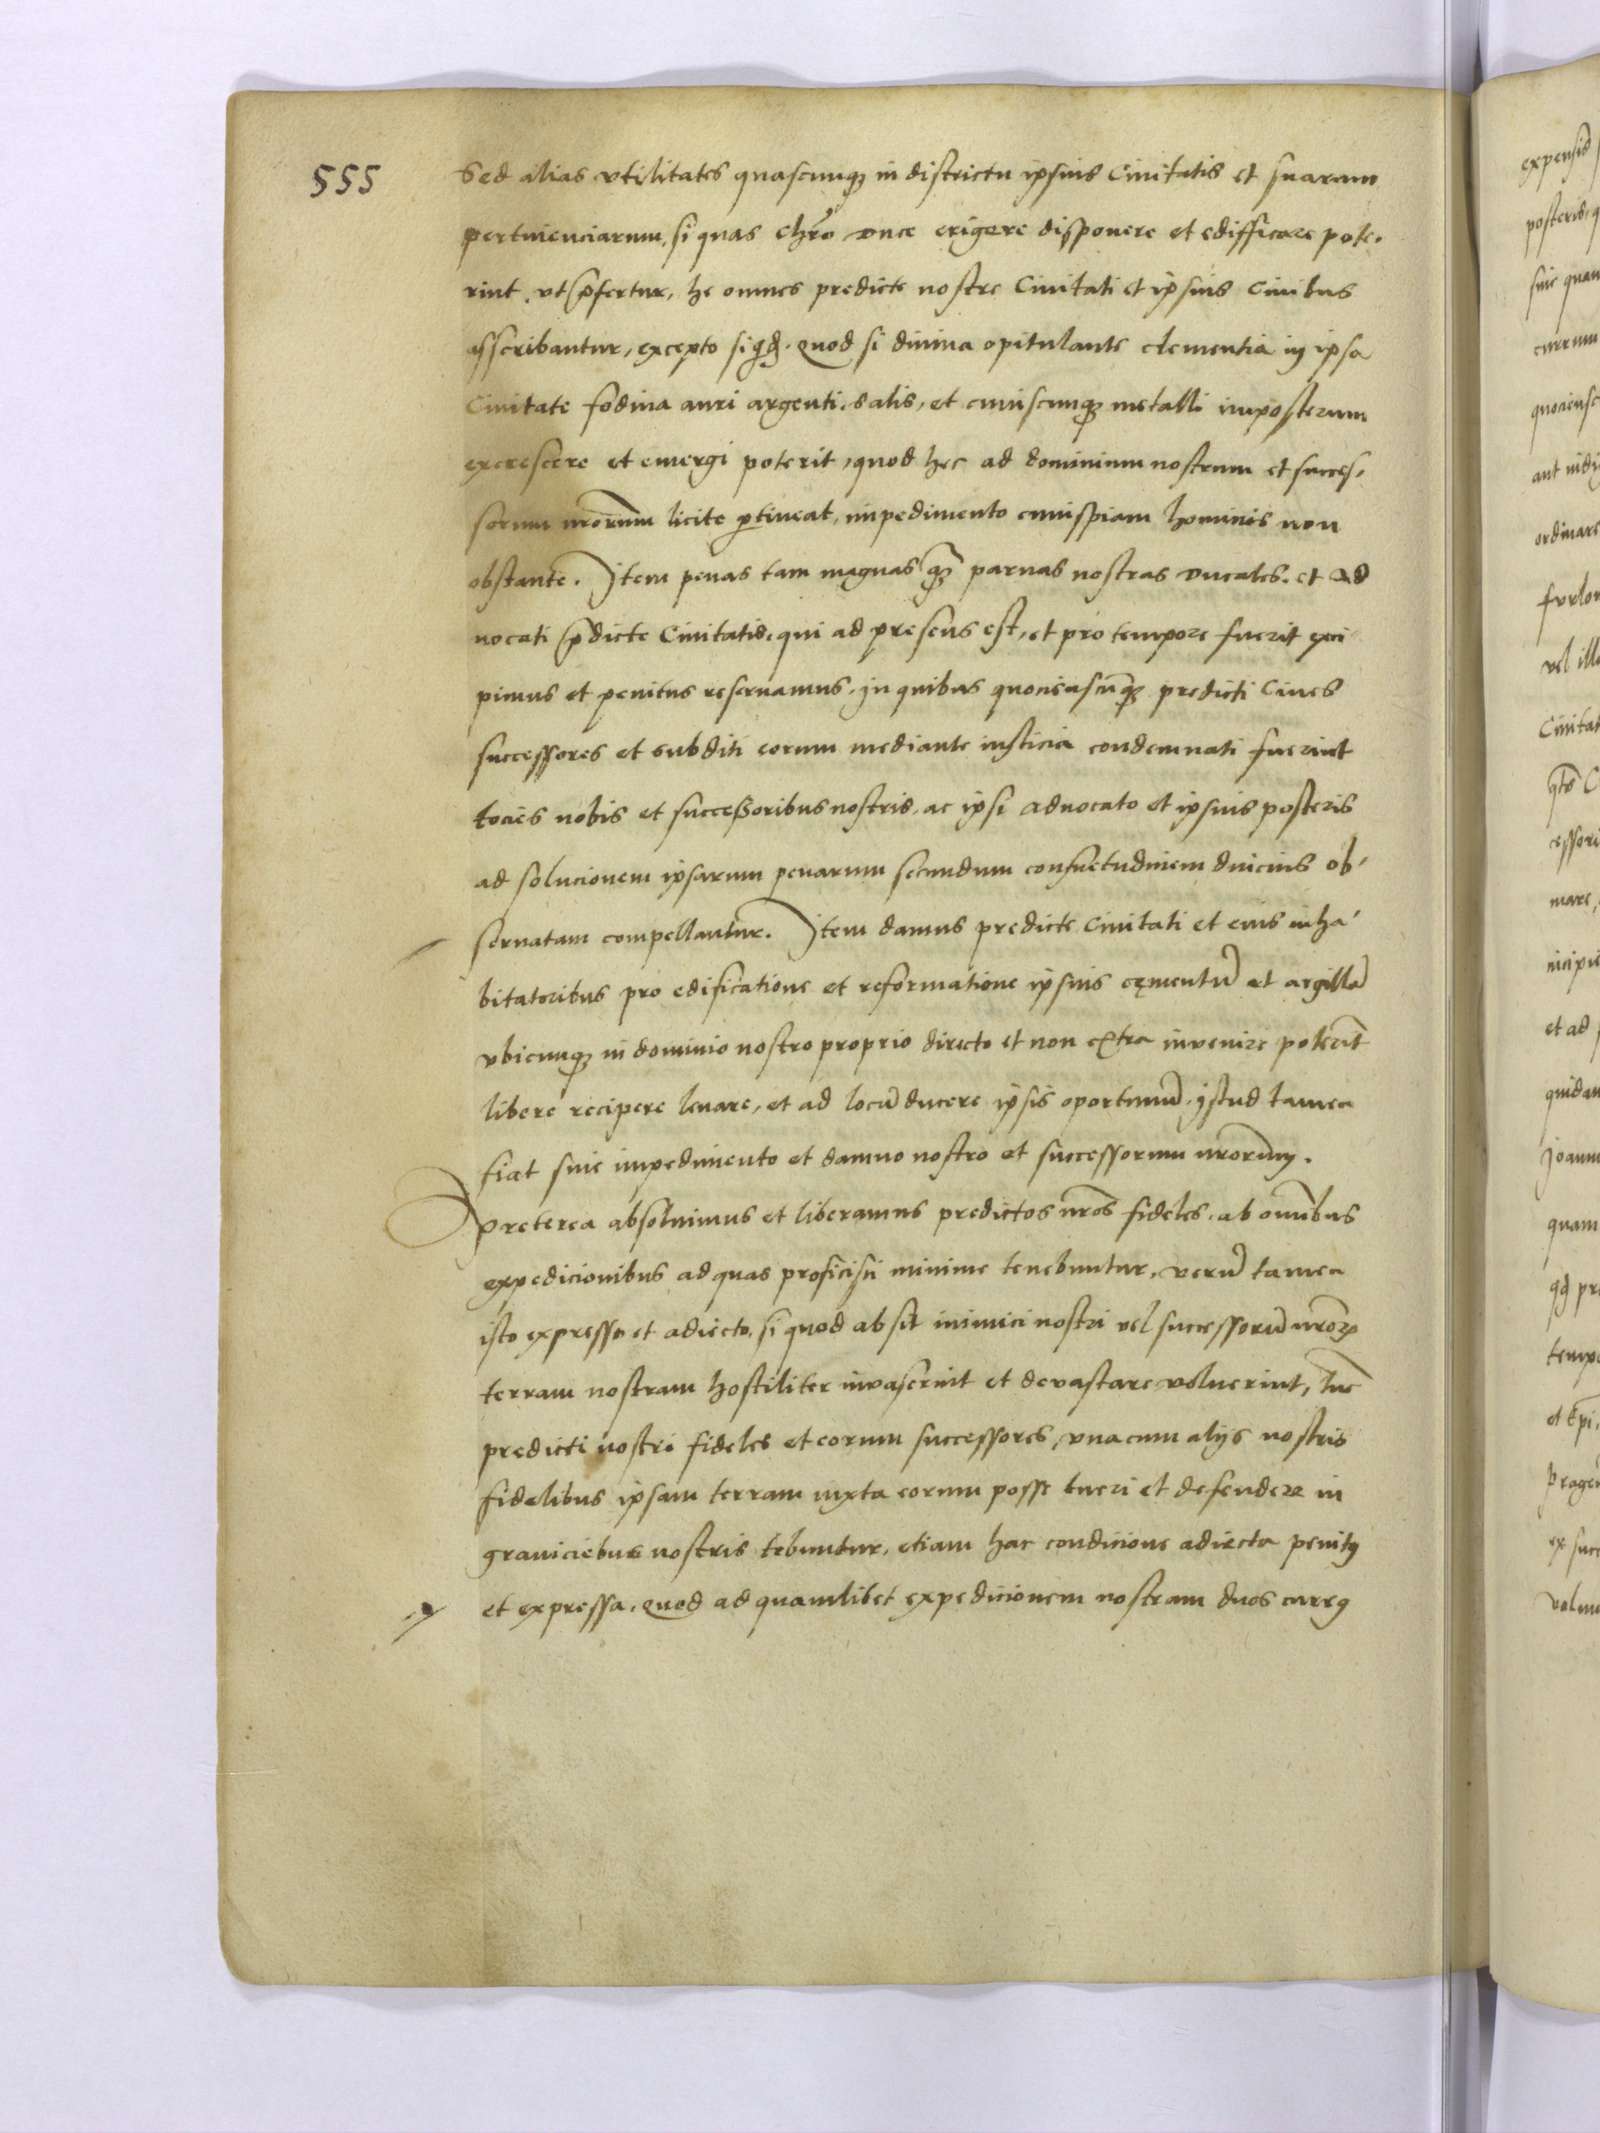 555
Sed alias vtilitates quascunqz in districtu ipsius Ciuitatis et suarum
pertinenciarum, si quas chro duce erigere disponere et edifficare pote,
rint, vt pfertur, he omnes predicte nostre Ciuitati et ipsius Ciuibus
asscribantur, excepto siqd. quod si diuina opitulante clementia in ipsa
Ciuitate fodina auri argenti, salis, et cuiuscunqz metalli imposterum
excrescere et emergi poterit, quod hec ad dominium nostrum et succes,
sorum nrorum licite ptineat, impedimento cuiuspiam hominis non
obstante. Item penas tam magnas qz paruas nostras ducales. et Ad
uocati pdicte Ciuitatis, qui ad presens est, et pro tempore fuerit exci
pimus et penitus reseruamus, in quibus quociescuqz predicti Ciues
successores et subditi eorum mediante iusticia condemnati fuerint
tocies nobis et successoribus nostris, ac ipsi aduocato et ipsius posteris
ad solucionem ipsarum penarum secundum consuetudinem diucius ob,
seruatam compellantur. Item damus predicte Ciuitati et eius inha,
bitatoribus pro edificatione et reformatione ipsius cęmentu et argilla
vbicunqz in dominio nostro proprio directo et non extra invenire poterit
libere recipere leuare, et ad locu ducere ipsis oportunu, istud tamen
fiat sine impedimento et damno nostro et successorum nrorum.
Preterea absoluimus et liberamus predictos nros fideles, ab omibus
expedicionibus ad quas proficisci minime tenebuntur, veru tamen
isto expresso et adiecto, si quod absit inimici nostri vel successoru nrorz
terram nostram hostiliter invaserint et devastare voluerint, tuc
predicti nostri fideles et eorum successores, vna cum alijs nostris
fidelibus ipsam terram iuxta eorum posse tueri et defendere in
grauiciebus nostris tebuntur, etiam hac condicione adiecta penitus
et expressa, quod ad quamlibet expedicionem nostram duos currus